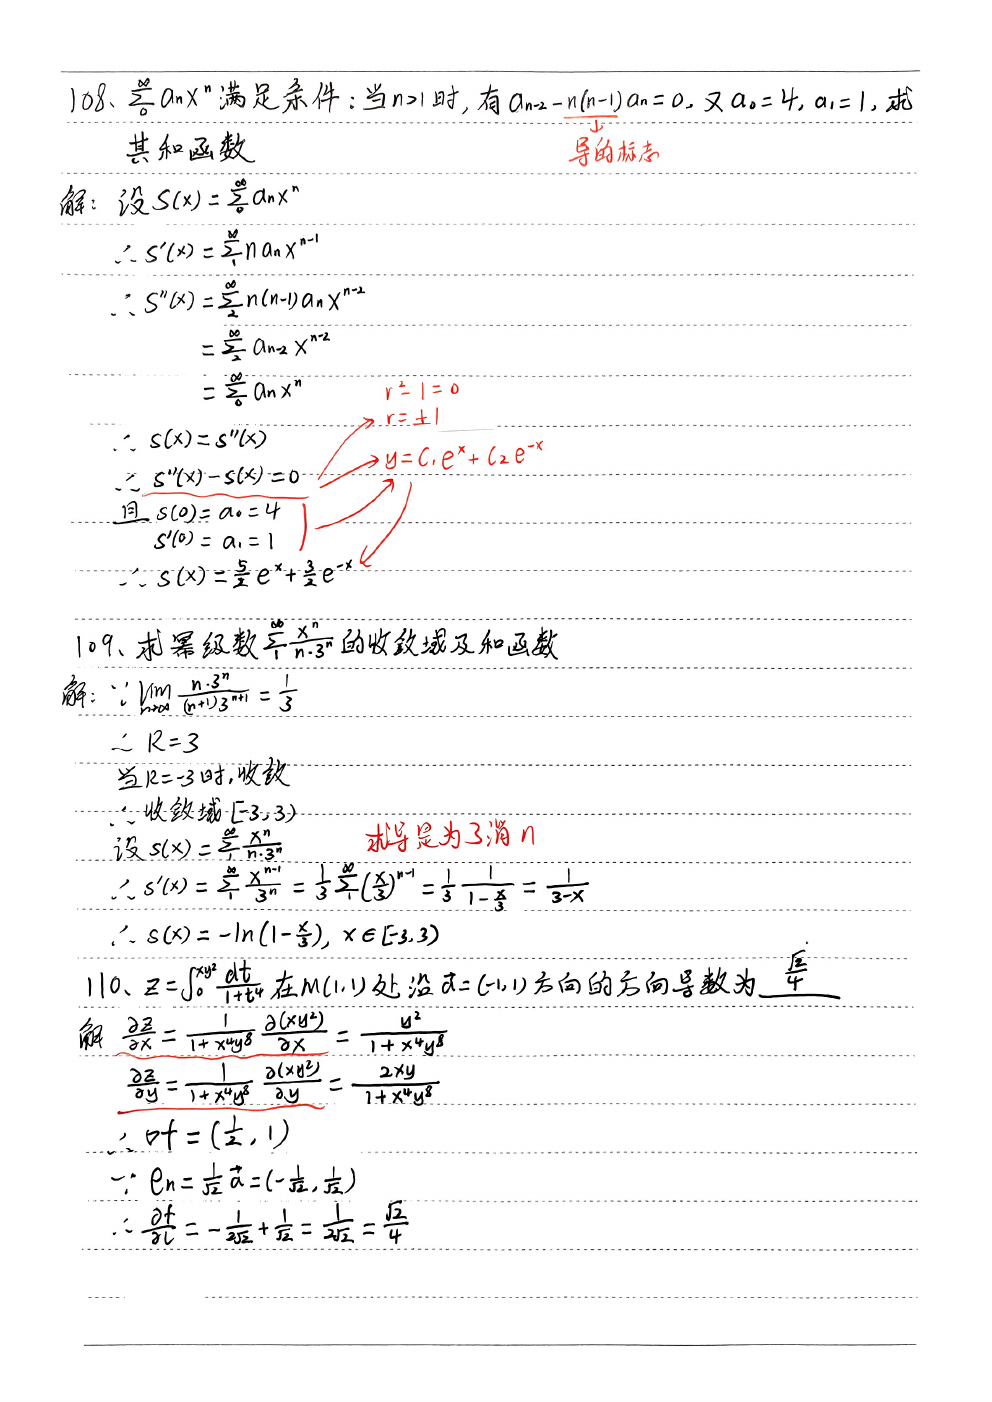 108、∑_0^∞ aₙxⁿ 满足条件：当n>1时，有 aₙ₋₂ − n(n−1)aₙ = 0，又 a₀ = 4，a₁ = 1，求
↓
导的标志
其和函数
解：设 S(x) = ∑_0^∞ aₙxⁿ
∴ S'(x) = ∑_1^∞ n aₙ xⁿ⁻¹
∴ S''(x) = ∑_2^∞ n(n-1) aₙ xⁿ⁻²
= ∑_2^∞ aₙ₋₂ xⁿ⁻²
= ∑_0^∞ aₙxⁿ
r² − 1 = 0
r = ±1
∴ s(x) = s''(x)
y = C₁eˣ + C₂e⁻ˣ
∴ s''(x) − s(x) = 0
且 s(0) = a₀ = 4
s'(0) = a₁ = 1
∴ s(x) = 5/2 eˣ + 3/2 e⁻ˣ
109、求幂级数 ∑_1^∞ xⁿ/(n·3ⁿ) 的收敛域及和函数
解：∵ lim_{n→∞} n·3ⁿ/((n+1)3ⁿ⁺¹) = 1/3
∴ R = 3
当R=-3时，收敛
∴ 收敛域 [-3, 3)
设 s(x) = ∑_1^∞ xⁿ/(n·3ⁿ)
求导是为了消 n
∴ s'(x) = ∑_1^∞ xⁿ⁻¹/3ⁿ = 1/3 ∑_1^∞ (x/3)ⁿ⁻¹ = 1/3 · 1/(1−x/3) = 1/(3−x)
∴ s(x) = −ln(1−x/3), x∈[-3,3)
110、z = ∫_0^{xy²} dt/(1+t⁴) 在 M(1,1) 处沿 a⃗ = (-1,1) 方向的方向导数为 √2/4
解 ∂z/∂x = 1/(1+x⁴y⁸) ∂(xy²)/∂x = y²/(1+x⁴y⁸)
∂z/∂y = 1/(1+x⁴y⁸) ∂(xy²)/∂y = 2xy/(1+x⁴y⁸)
∴ ∇f = (1/2, 1)
∵ eₙ = 1/√2 a⃗ = (−1/√2, 1/√2)
∴ ∂f/∂l = −1/(2√2) + 1/√2 = 1/(2√2) = √2/4